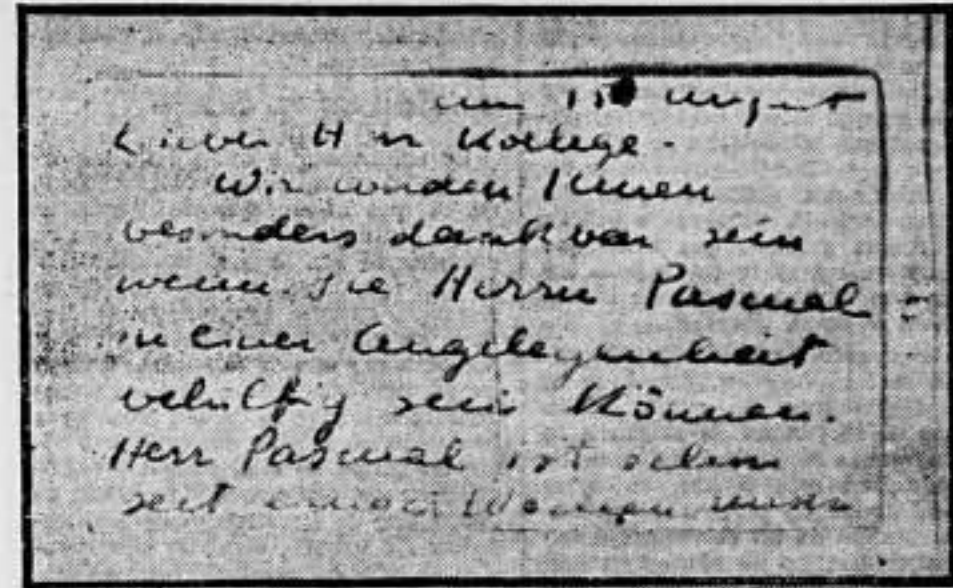 am 15 August
Lieber Herr Kollege.
Wir würden Ihnen
besonders dankbar sein
wenn Sie Herrn Pascual
in einer Angelegenheit
behülflig sein Können.
Herr Pascual ist schon
seit einigen Wochen unser